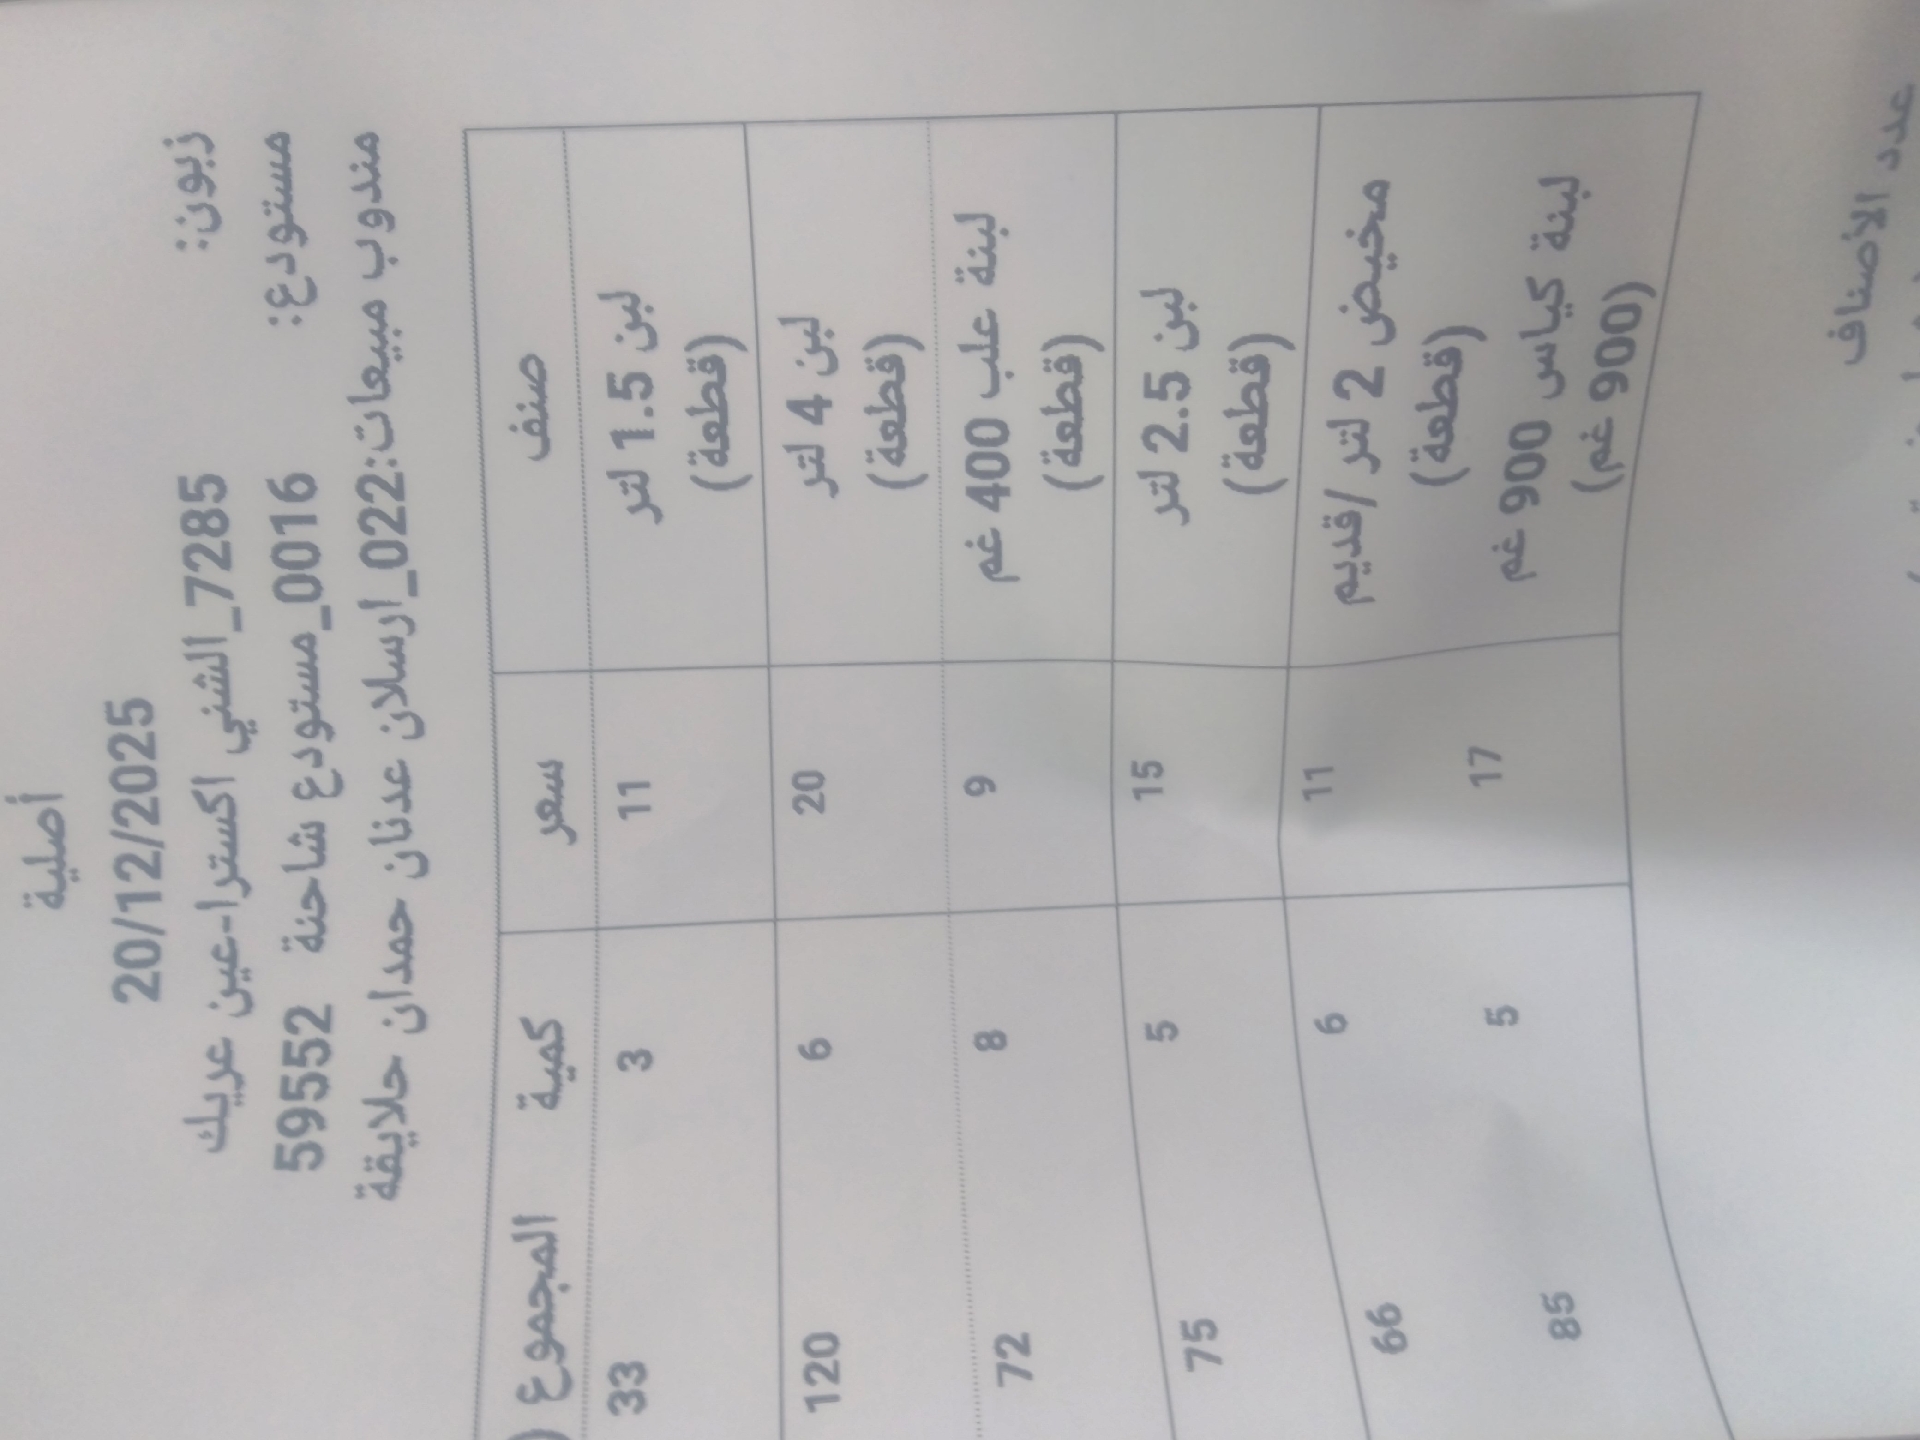 أصلية
20/12/2025
زبون: 7285_الشني اكسترا-عين عريك
مستودع: 0016_مستودع شاحنة 59552
مندوب مبيعات:022_ارسلان عدنان حمدان حلايقة
صنف سعر كمية المجموع (
لبن 1.5 لتر (قطعة) 11 3 33
لبن 4 لتر (قطعة) 20 6 120
لبنة علب 400 غم (قطعة) 9 8 72
لبن 2.5 لتر (قطعة) 15 5 75
مخيض 2 لتر /قديم (قطعة) 11 6 66
لبنة كياس 900 غم (900 غم) 17 5 85
عدد الاصناف